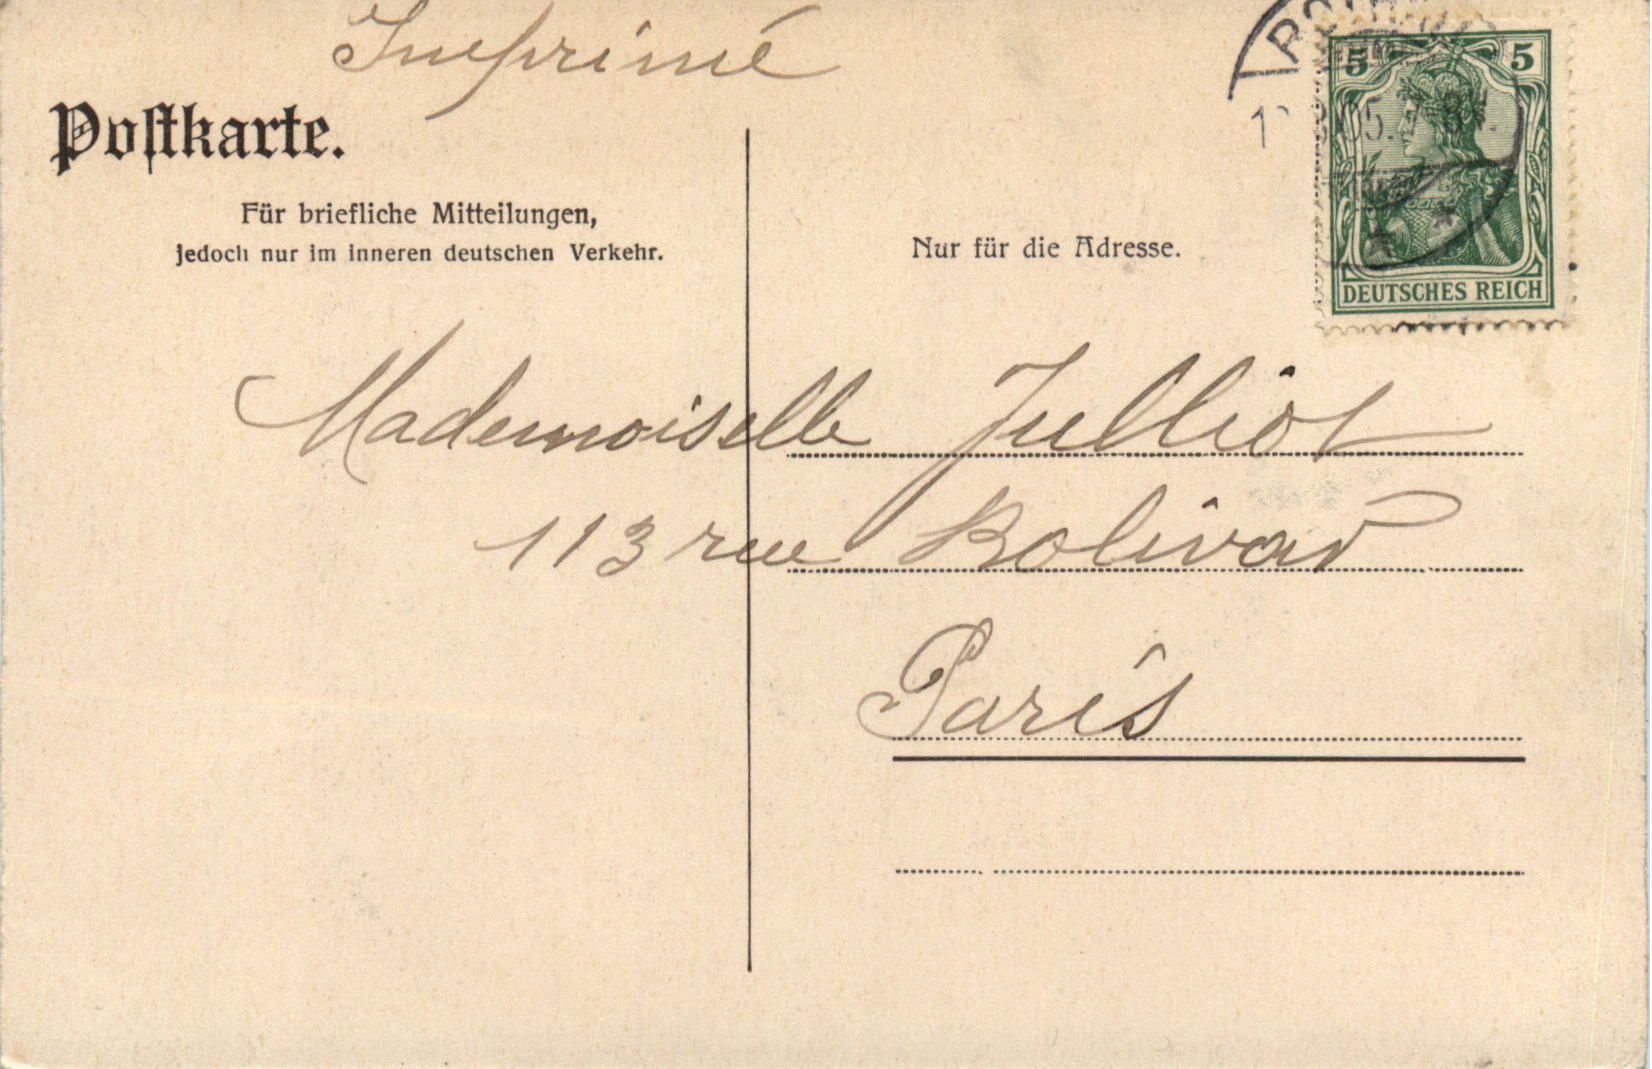 Imprimé
Postkarte.
Für briefliche Mitteilungen,
jedoch nur im inneren deutschen Verkehr.
Nur für die Adresse.
5 5
DEUTSCHES REICH
Mademoiselle Julliot
113 rue Bolivar
Paris